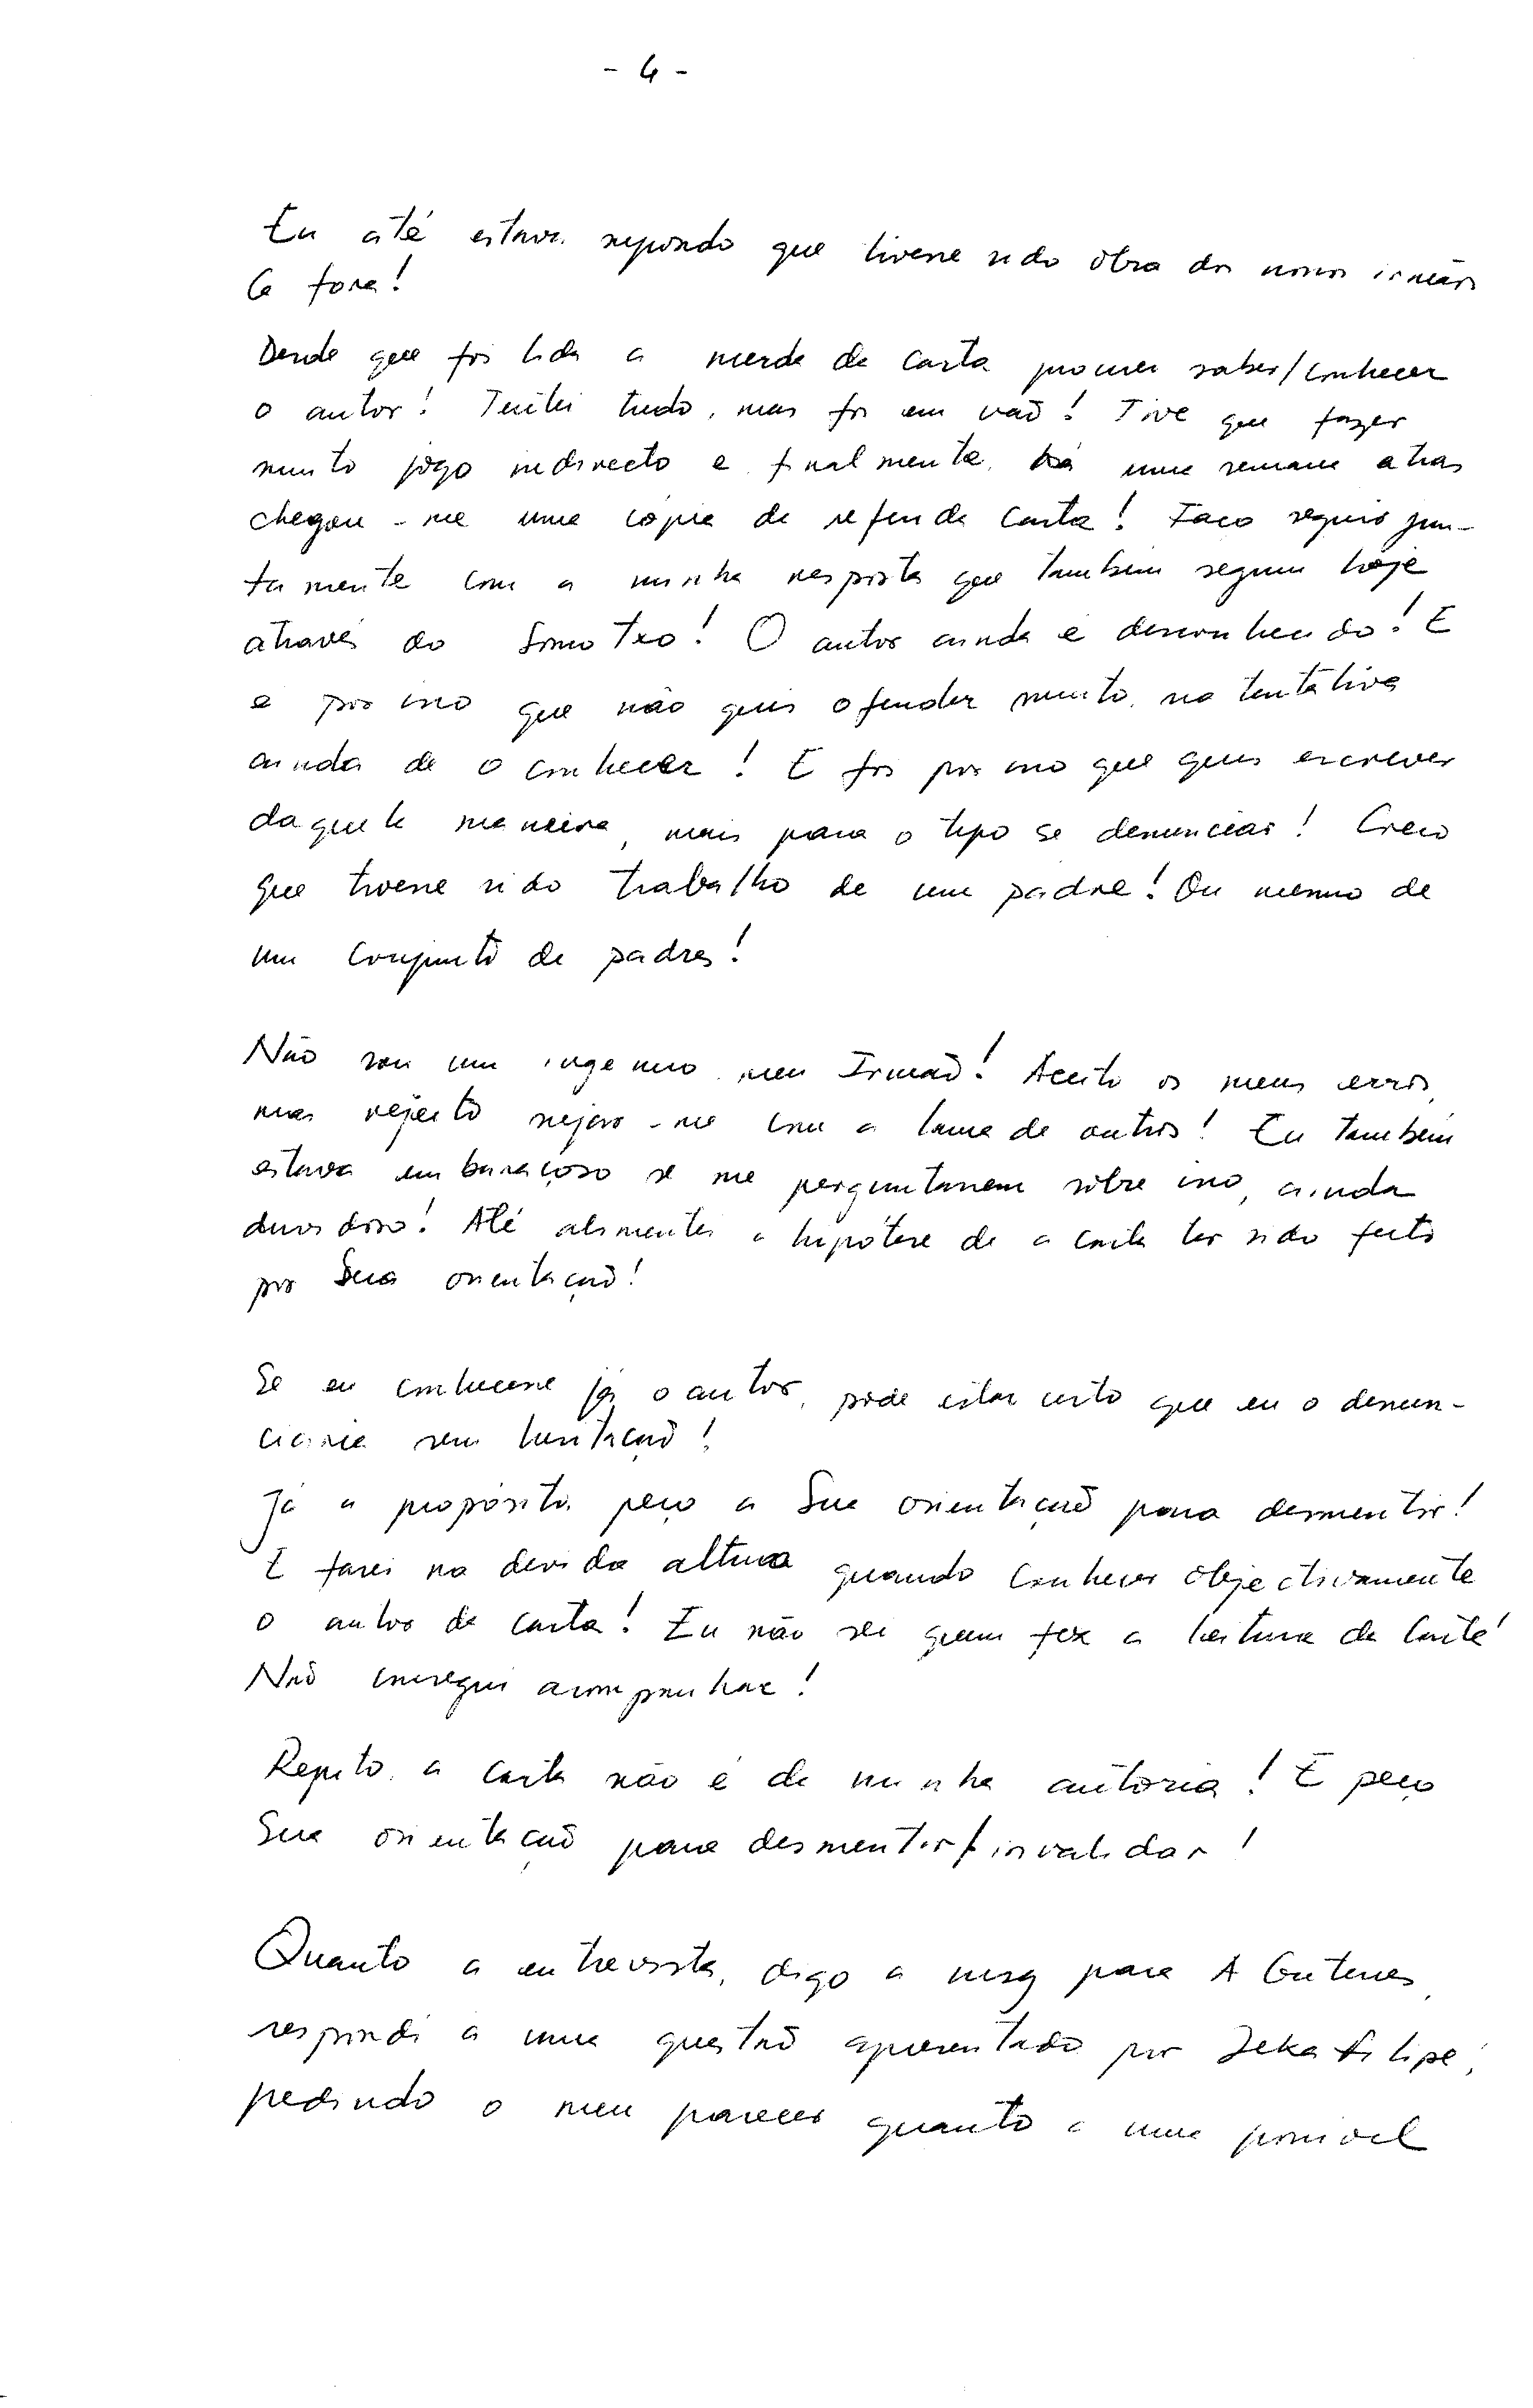 - 4 -
Eu até estava supondo que tivesse sido obra dos nossos irmãos
lá fora!
Desde que foi lida a merda da carta procurei saber/conhecer
o autor! Tentei tudo, mas foi em vão! Tive que fazer
muito jogo indirecto e finalmente, há uma semana atras
chegou-me uma copia da referida carta! Faço seguir jun-
tamente com a minha resposta que tambem seguiu hoje
através do Somotxo! O autor ainda é desconhecido! E
é por isso que não quis ofender muito, na tentativa
ainda de o conhecer! E foi por isso que quis escrever
daquela maneira, mais para o tipo se denunciar! Creio
que tivesse sido trabalho de um padre! Ou mesmo de
um conjunto de padres!
Não sou um ingenuo, meu Irmaõ! Aceito os meus erros,
mas rejeito sujar-me com a lama de outros! Eu também
estava embaraçoso se me perguntassem sôbre isso, ainda
duvidoso! Até alimentei a hipótese de a carta ter sido feito
por Sua orientaçaõ!
Se eu conhecesse já o autor, pode estar certo que eu o denun-
ciaria sem hesitaçaõ!
Já a propósito, peço a Sua orientaçaõ para desmentir!
E farei na devida altura quando conhecer objectivamente
o autor da carta! Eu não sei quem fez a leitura da carta!
Naõ consegui acompanhar!
Repito, a carta não é de minha autoria! E peço
Sua orientaçaõ para desmentir/invalidar!
Quanto a entrevista, digo a msg para A Guterres,
respondi a uma questaõ apresentado por Zeka Filipe,
pedindo o meu parecer quanto a uma possivel